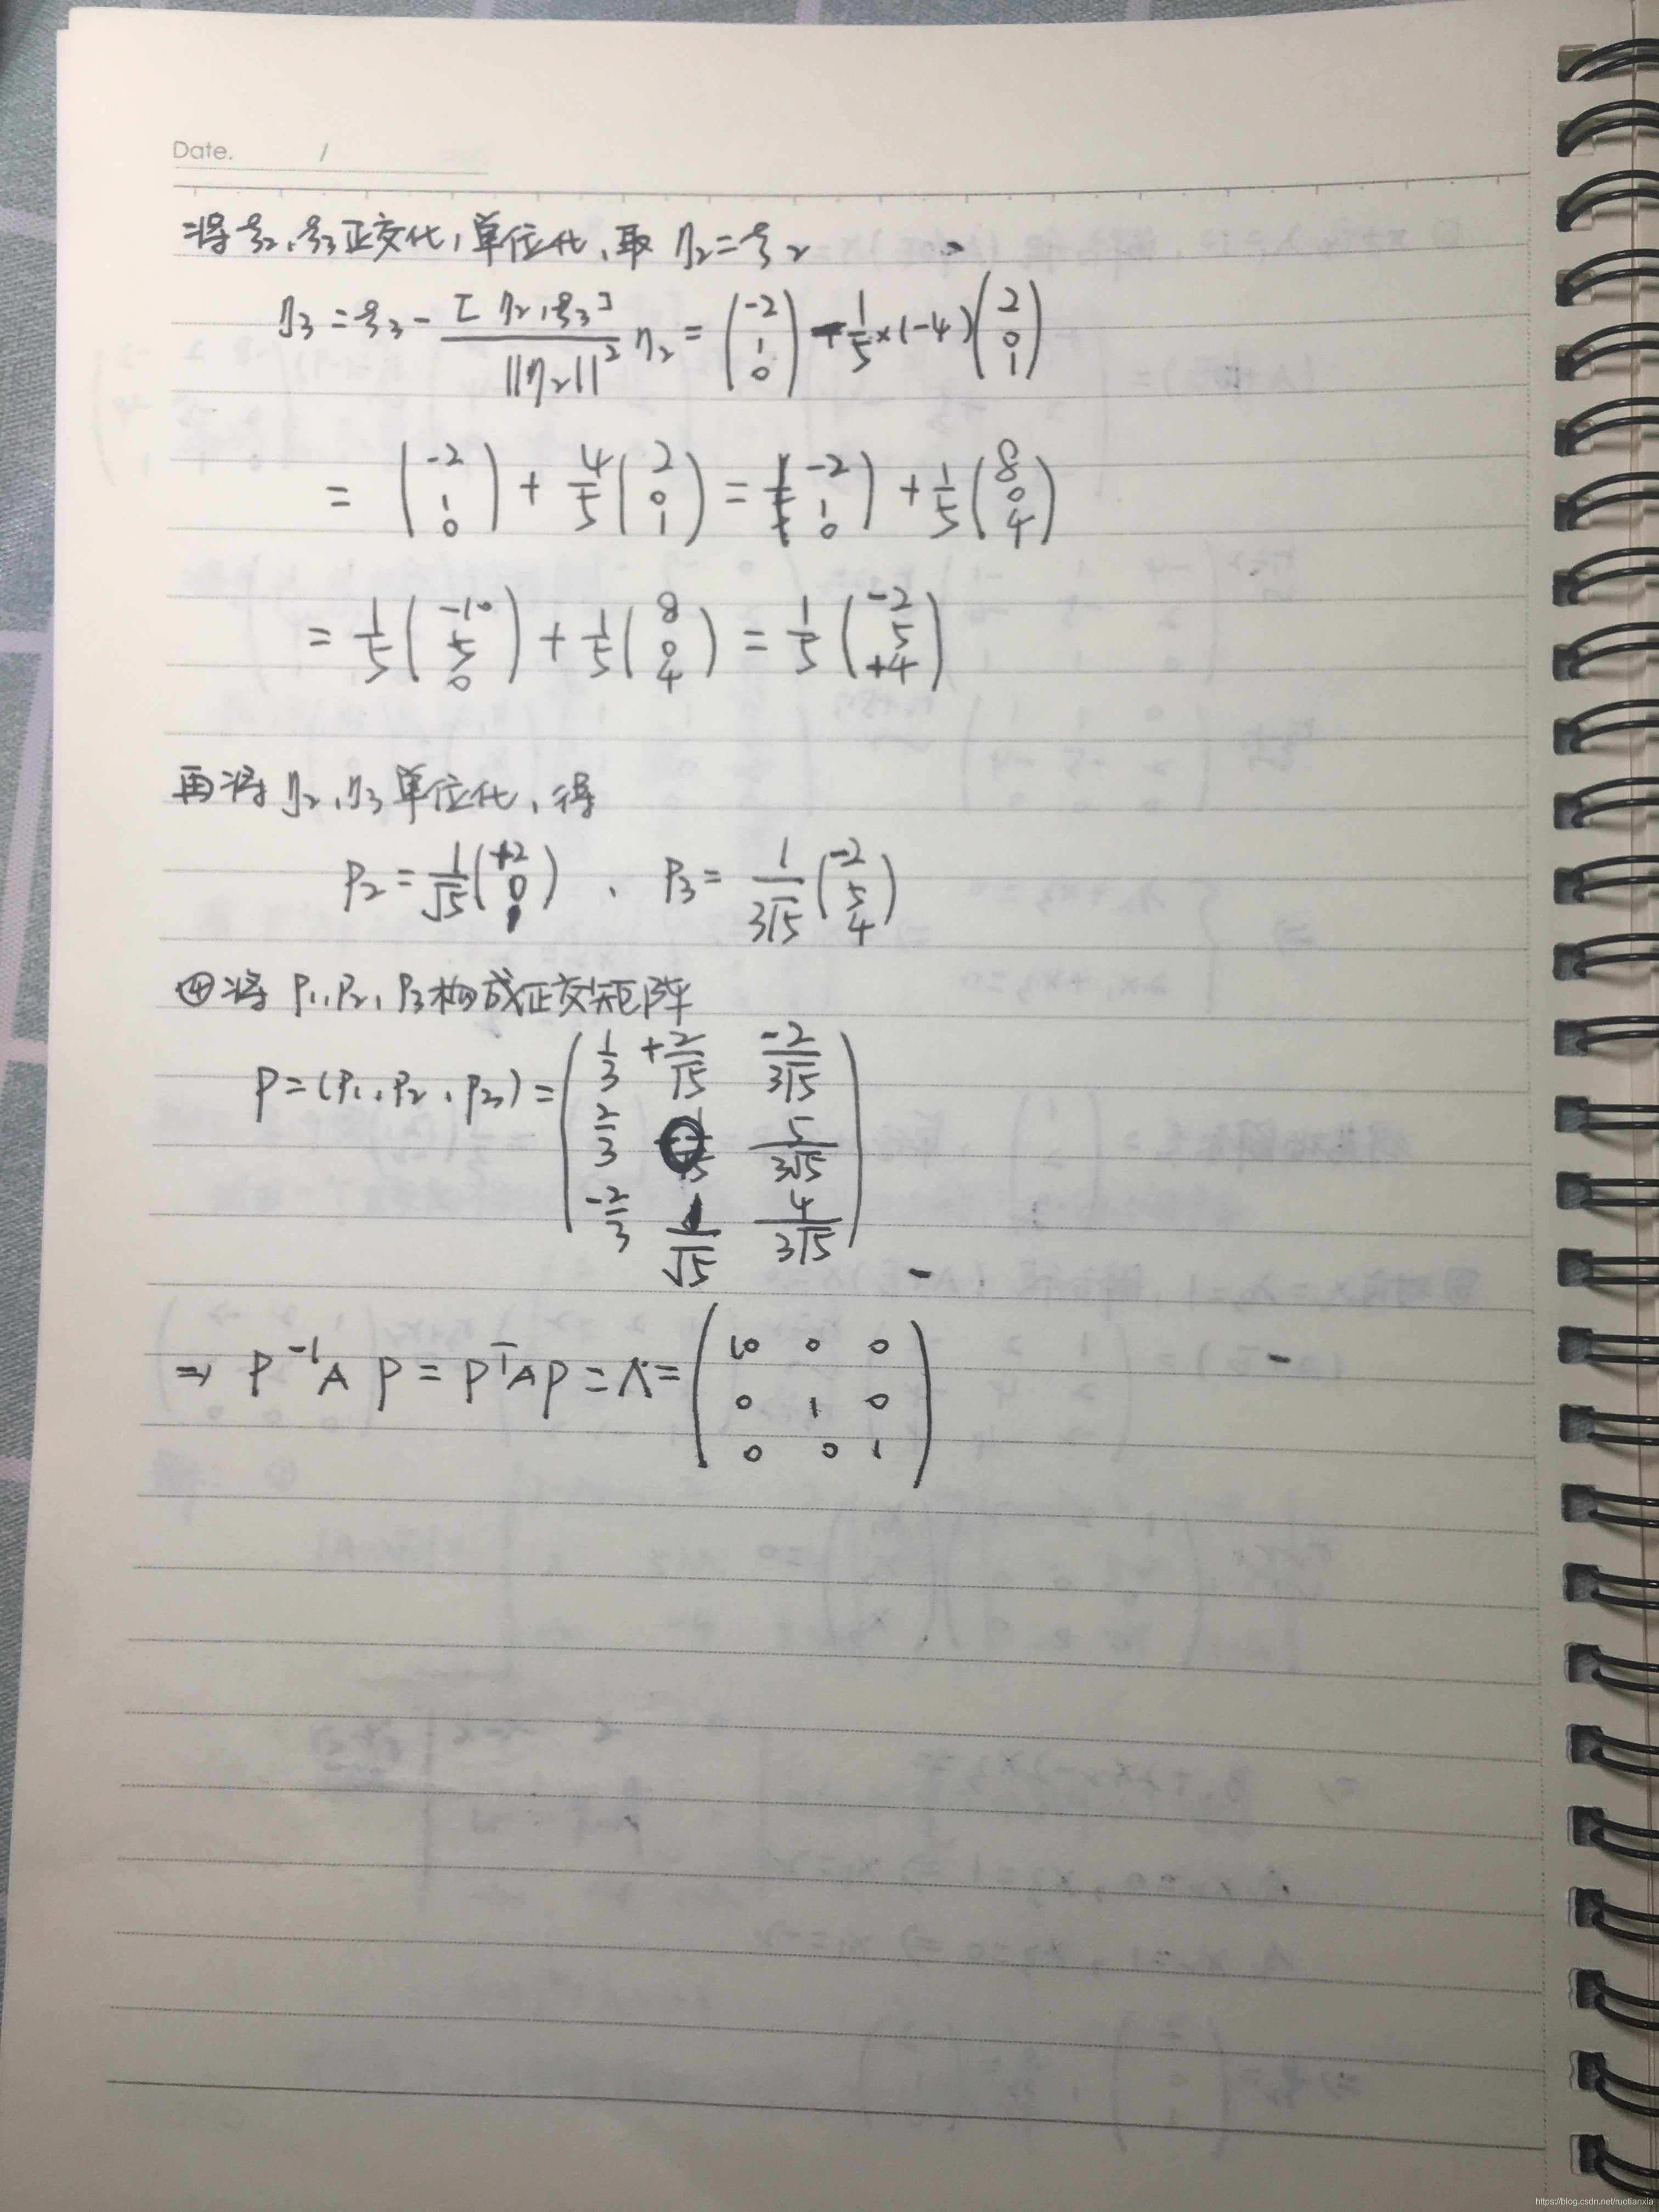 Date. /
将ξ₂,ξ₃正交化,单位化,取 η₂=ξ₂
η₃=ξ₃-\frac{[η₂,ξ₃]}{||η₂||²}η₂=\begin{pmatrix}-2\\1\\0\end{pmatrix}-\frac{1}{5}×(-4)\begin{pmatrix}2\\0\\1\end{pmatrix}
=\begin{pmatrix}-2\\1\\0\end{pmatrix}+\frac{4}{5}\begin{pmatrix}2\\0\\1\end{pmatrix}=\begin{pmatrix}-2\\1\\0\end{pmatrix}+\frac{1}{5}\begin{pmatrix}8\\0\\4\end{pmatrix}
=\frac{1}{5}\begin{pmatrix}-10\\5\\0\end{pmatrix}+\frac{1}{5}\begin{pmatrix}8\\0\\4\end{pmatrix}=\frac{1}{5}\begin{pmatrix}-2\\5\\+4\end{pmatrix}
再将η₂,η₃单位化,得
P₂=\frac{1}{\sqrt{5}}\begin{pmatrix}+2\\0\\1\end{pmatrix}、P₃=\frac{1}{3\sqrt{5}}\begin{pmatrix}-2\\5\\4\end{pmatrix}
④将P₁,P₂,P₃构成正交矩阵
P=(P₁,P₂,P₃)=\begin{pmatrix}\frac{1}{3}&+\frac{2}{\sqrt{5}}&\frac{-2}{3\sqrt{5}}\\\frac{2}{3}&0&\frac{5}{3\sqrt{5}}\\\frac{-2}{3}&\frac{1}{\sqrt{5}}&\frac{4}{3\sqrt{5}}\end{pmatrix}
⇒ P⁻¹AP=PᵀAP=Λ=\begin{pmatrix}10&0&0\\0&1&0\\0&0&1\end{pmatrix}
https://blog.csdn.net/ruotianxia